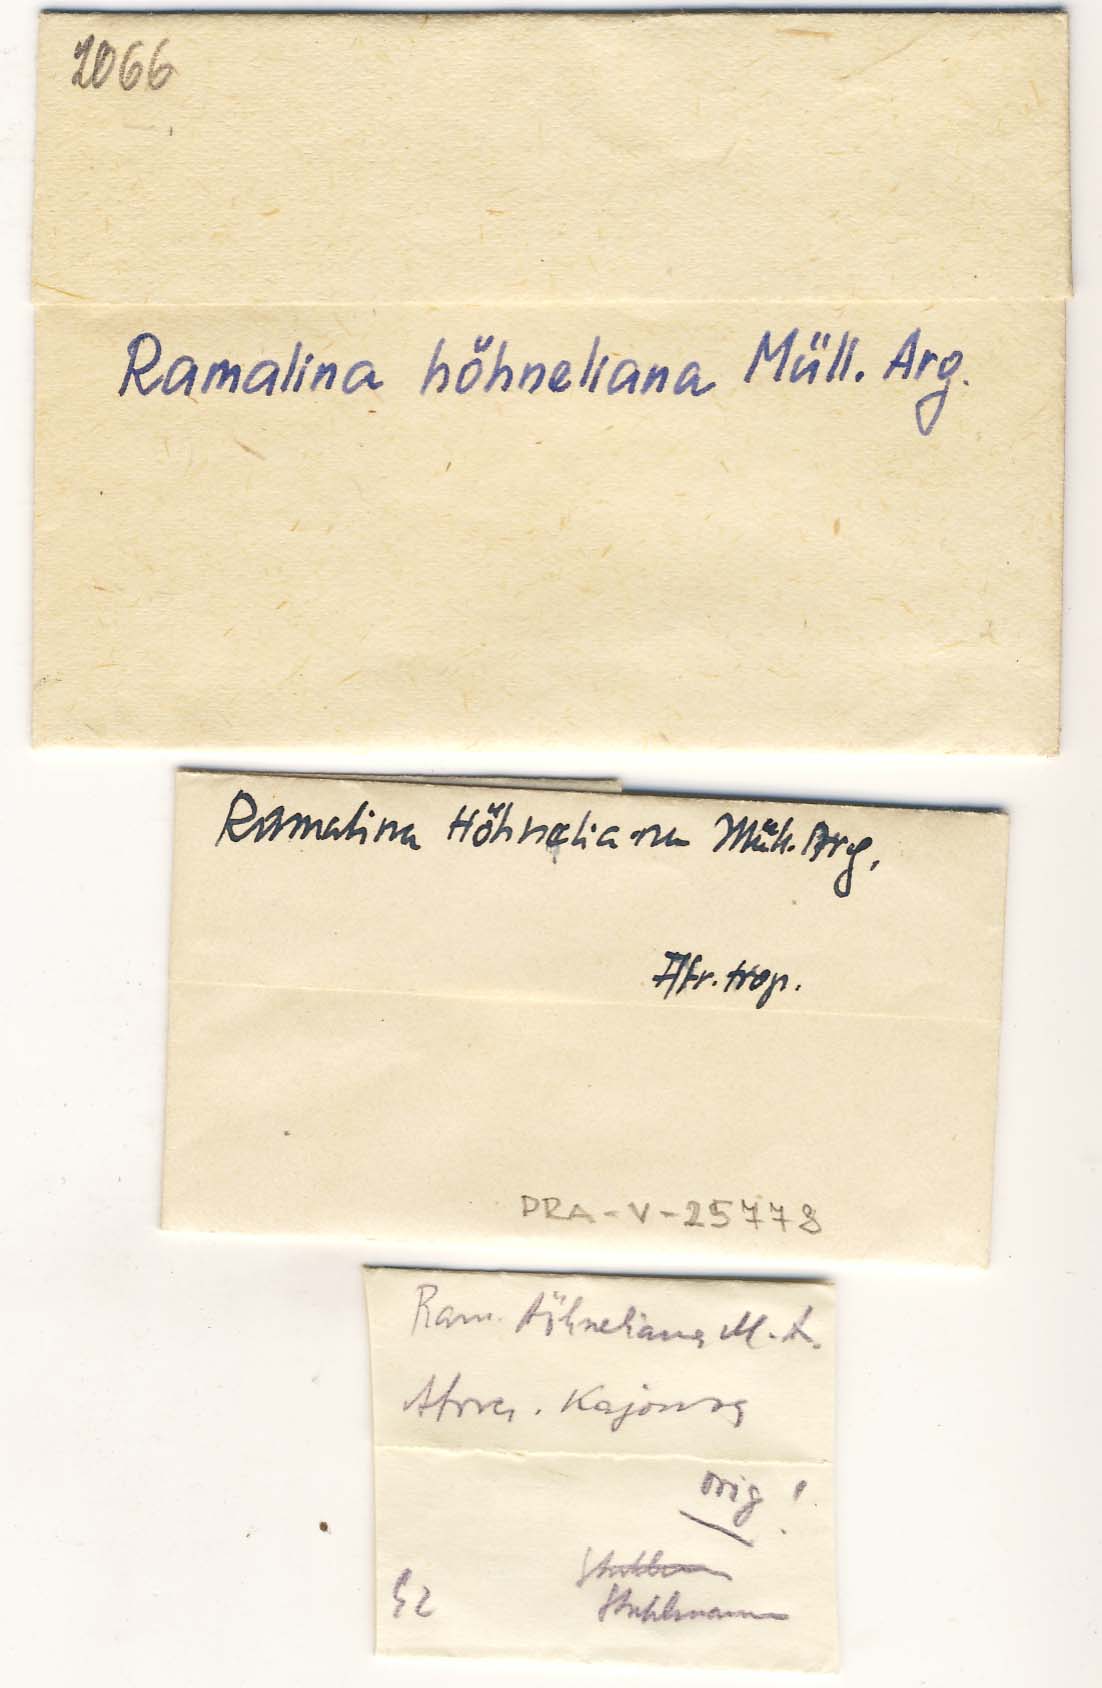 2066
Ramalina höhneliana Müll. Arg.
Ramalina Höhneliana Müll. Arg.
Afr. trop.
PRA-V-25778
Ram. Höhneliana M. A.
Africa. Kajonsa
orig!
Stuhlmann